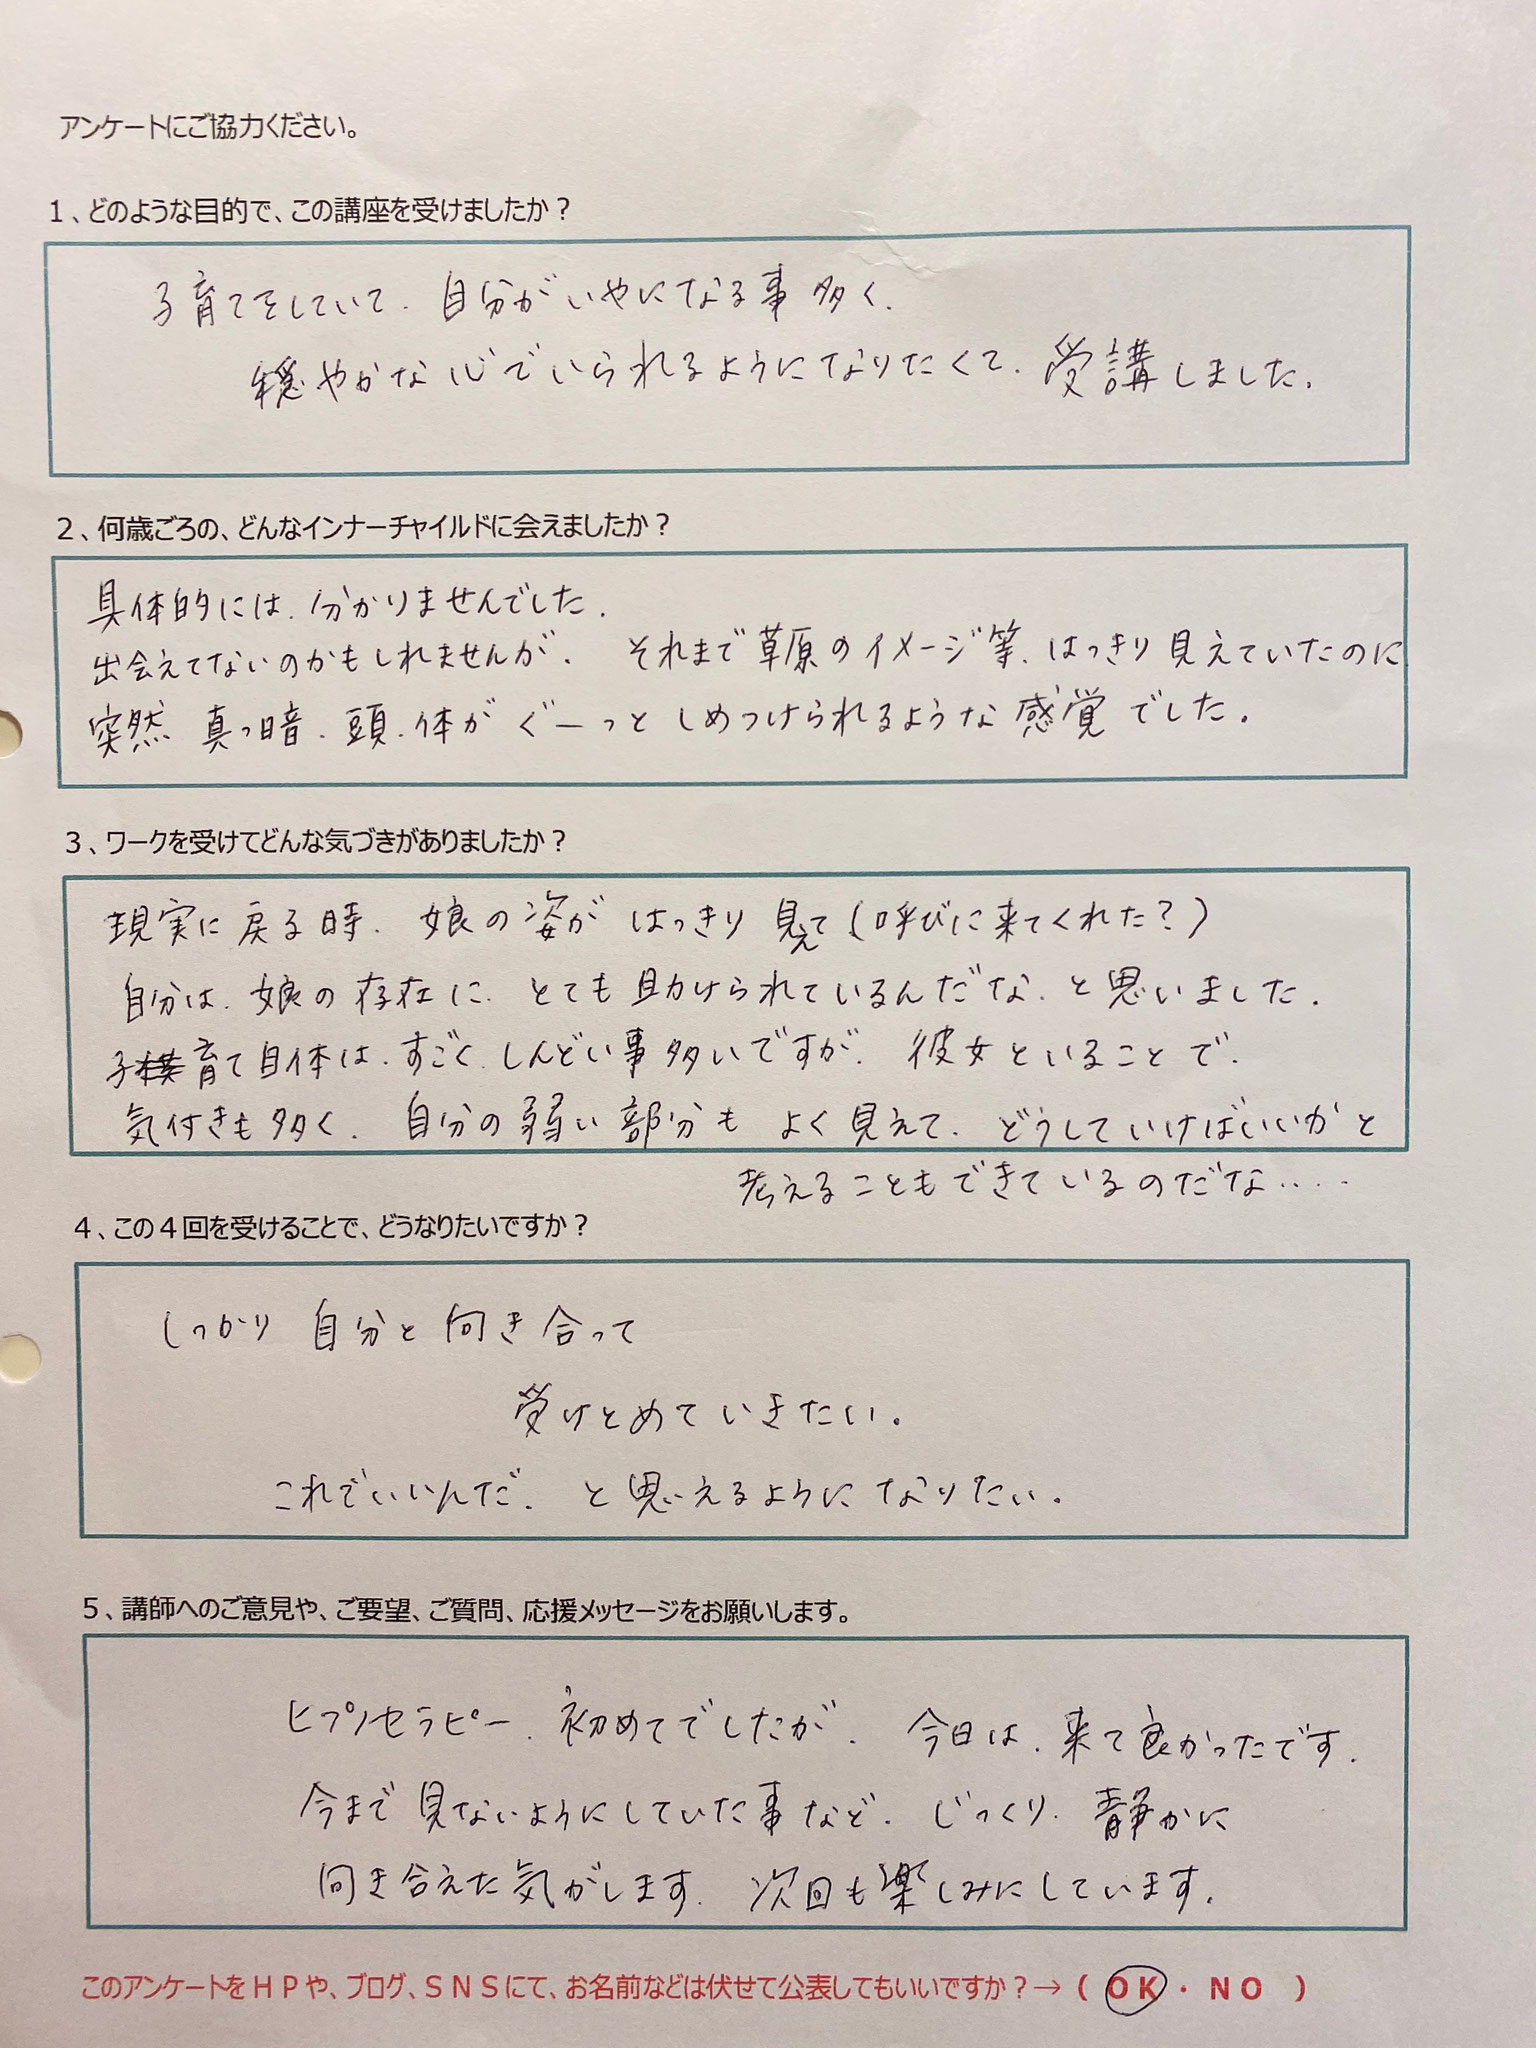 アンケートにご協力ください。
１、どのような目的で、この講座を受けましたか？
子育てをしていて、自分がいやになる事多く、
穏やかな心でいられるようになりたくて、受講しました。
２、何歳ごろの、どんなインナーチャイルドに会えましたか？
具体的には、分かりませんでした。
出会えてないのかもしれませんが、それまで草原のイメージ等、はっきり見えていたのに
突然 真っ暗、頭、体がぐーっとしめつけられるような感覚でした。
３、ワークを受けてどんな気づきがありましたか？
現実に戻る時、娘の姿がはっきり見えて（呼びに来てくれた？）
自分は、娘の存在に、とても助けられているんだな、と思いました。
子育て自体は、すごく、しんどい事多いですが、彼女といることで、
気付きも多く、自分の弱い部分もよく見えて、どうしていけばいいかと
考えることもできているのだな‥‥
４、この４回を受けることで、どうなりたいですか？
しっかり 自分と向き合って
受けとめていきたい。
これでいいんだ、と思えるようになりたい。
５、講師へのご意見や、ご要望、ご質問、応援メッセージをお願いします。
ヒプノセラピー、初めてでしたが、今日は、来て良かったです。
今まで見ないようにしていた事など、じっくり、静かに
向き合えた気がします。次回も楽しみにしています。
このアンケートをＨＰや、ブログ、ＳＮＳにて、お名前などは伏せて公表してもいいですか？→（ ＯＫ・ＮＯ ）